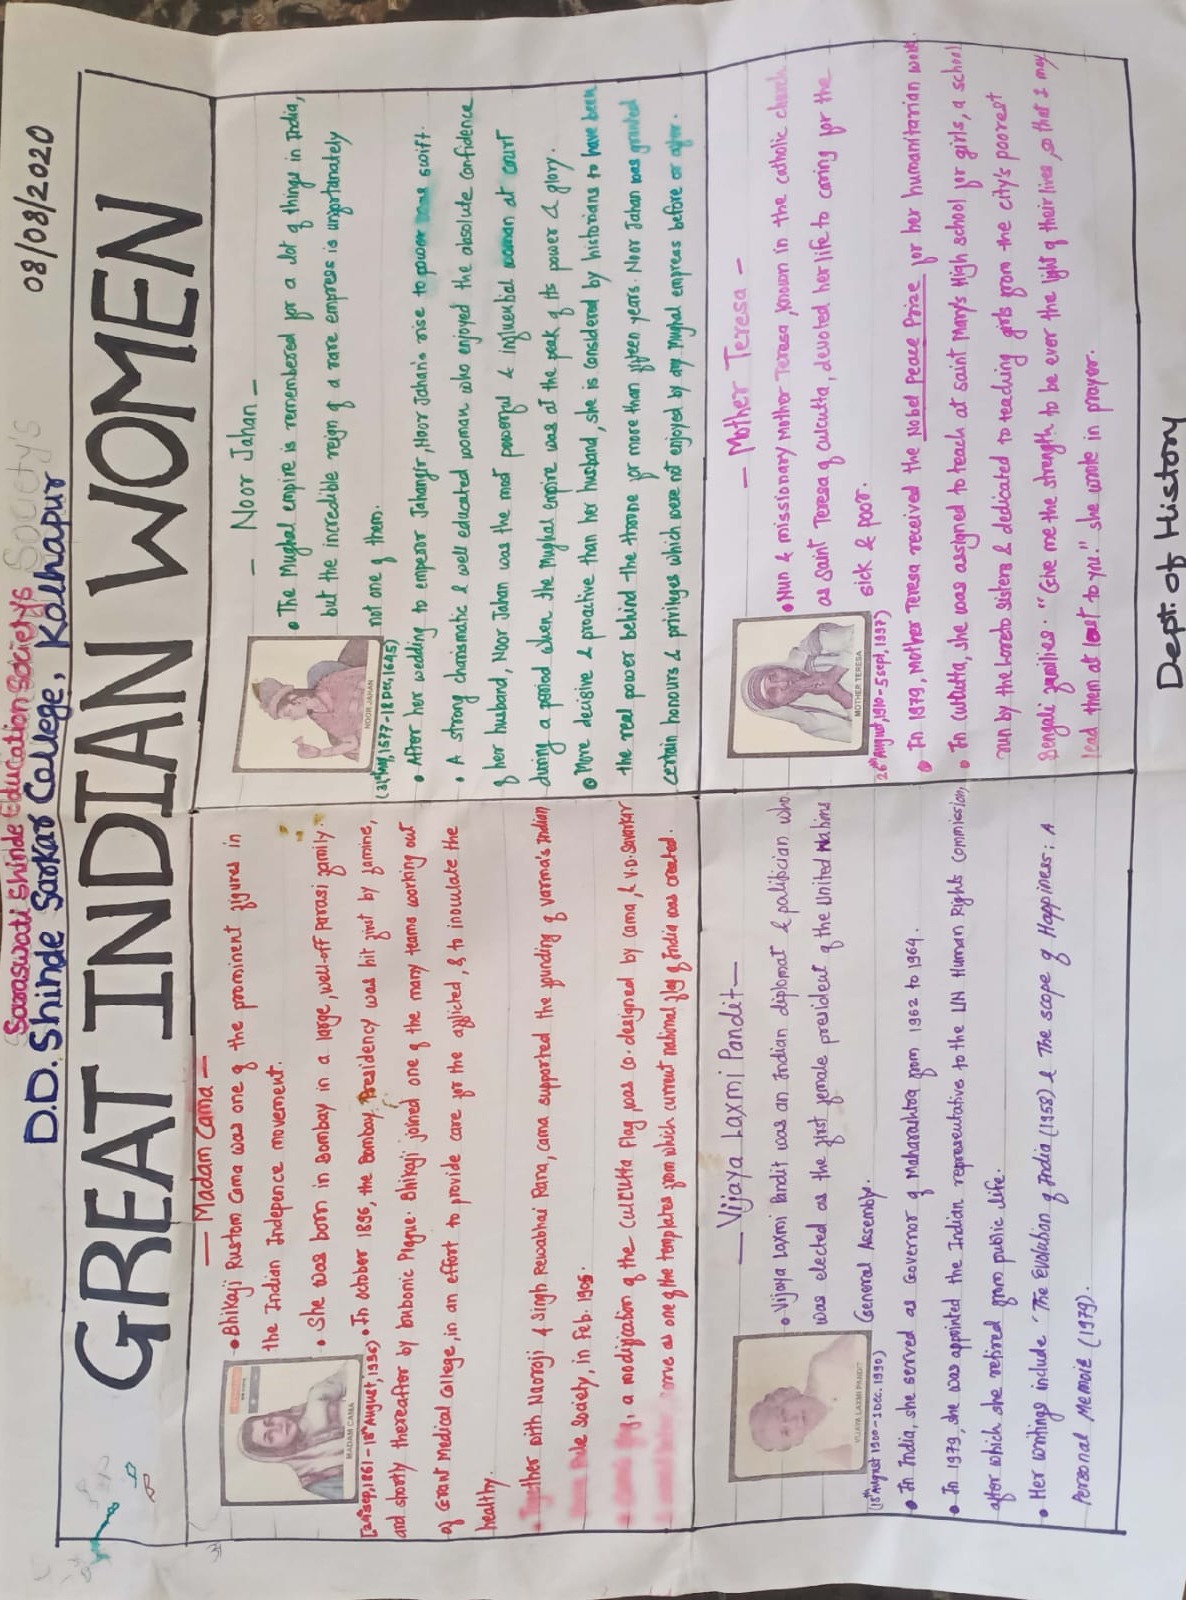 Saraswati Shinde Education Society's Society's
D.D. Shinde Sarkar College, Kolhapur
08/08/2020
GREAT INDIAN WOMEN
— Madam Cama —
• Bhikaji Rustom Cama was one of the prominent figures in
the Indian Indepence movement.
• She was born in Bombay in a large, well-off Parasi family.
MADAM CAMA
[24th sep, 1861 - 18th August, 1936]
• In october 1896, the Bombay Presidency was hit first by famine,
and shortly thereafter by bonbonic Plague. Bhikaji joined one of the many teams working out
of Grant Medical College, in an effort to provide care for the afflicted, & to inoculate the
healthy.
• Together with Naoroji & Singh Rewabhai Rana, cama supported the founding of varma's Indian
Rule Society, in Feb. 1905.
a modification of the Culcutta Flag, was co-designed by Cama, & V.D. Savarkar
serve as one of the templates from which current national flag of India was created.
— Noor Jahan —
• The Mughal empire is remembered for a dot of things in India,
but the incredible reign of a rare empress is unfortunately
not one of them.
NOOR JAHAN
(31st May, 1577 - 18 Dec, 1645)
• After her wedding to emperor Jahangir, Noor Jahan's rise to power was swift.
• A strong charismatic & well educated woman who enjoyed the absolute confidence
of her husband, Noor Jahan was the most powerful & influential woman at court
during a period when the Mughal empire was at the peak of its power & glory.
• More decisive & proactive than her husband, she is considered by historians to have been
the real power behind the throne for more than fifteen years. Noor Jahan was granted
certain honours & privileges which were not enjoyed by any Mughal empress before or after.
— Vijaya Laxmi Pandit —
• Vijaya Laxmi Pandit was an Indian diplomat & politician who
was elected as the first female president of the United Nations
General Assembly.
VIJAYA LAXMI PANDIT
(18th August 1900 - 1 Dec. 1990)
• In India, she served as Governor of Maharashtra from 1962 to 1964.
• In 1979, she was appointed the Indian representative to the UN Human Rights Commission,
after which she retired from public life.
• Her writings include 'The Evolution of India (1958) & The scope of Happiness: A
Personal Memoir (1979).
— Mother Teresa —
• Nun & missionary Mother Teresa, known in the catholic church
as Saint Teresa of culcutta, devoted her life to caring for the
sick & poor.
MOTHER TERESA
26th August, 1910 - 5 sept, 1997)
• In 1979, Mother Teresa received the Nobel Peace Prize for her humanitarian work.
• In Culcutta, she was assigned to teach at saint Mary's High school for girls, a school
run by the Loreto sisters & dedicated to teaching girls from the city's poorest
Bengali families. "Give me the strength to be ever the light of their lives, so that I may
lead them at last to you." she wrote in prayer.
Dept. of History